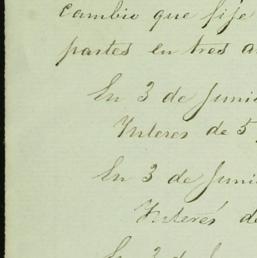 cambio que fije
partes en tres a
En 3 de Juni
Interes de 5
En 3 de Juni
Interés de
En 3 de